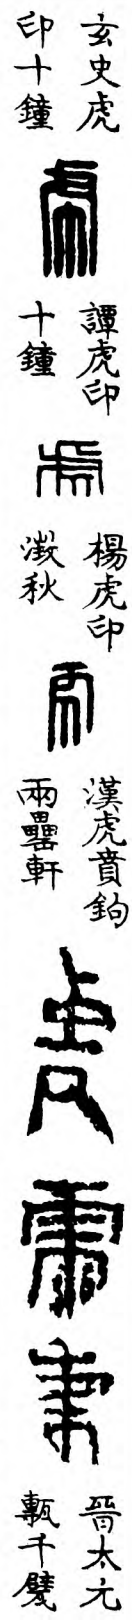 玄史虎
印十鐘
譚虎印
十鐘
楊虎印
澂秋
漢虎賁鉤
兩罍軒
晉太元
甎千甓